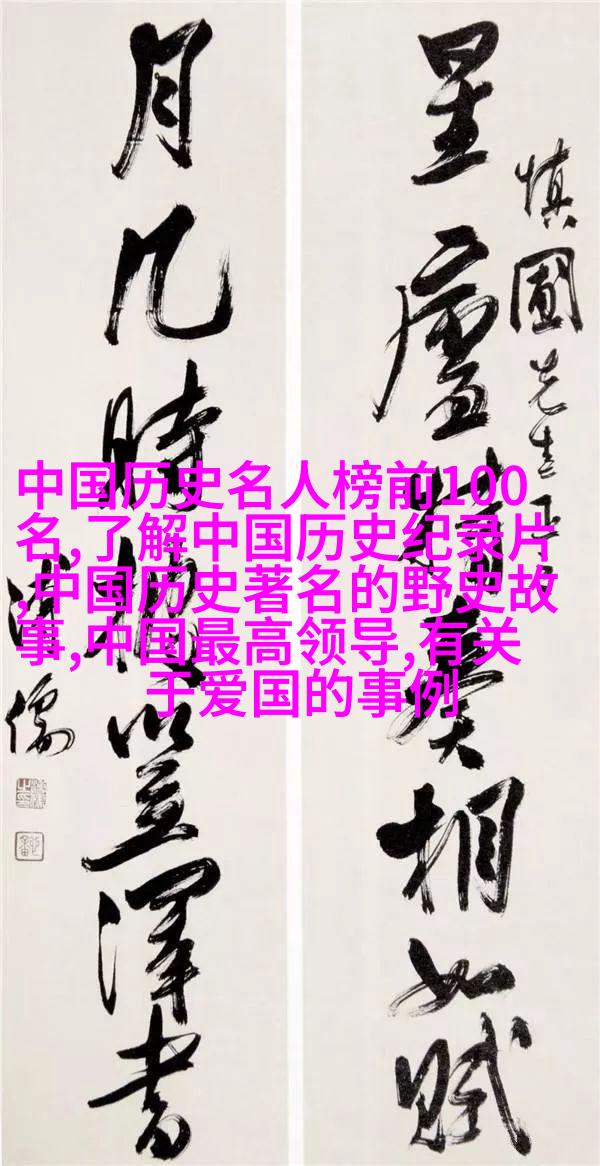 慎圃先生
星廬奏相如賦
月几時笠澤書
溥儒
中国历史名人榜前100
名,了解中国历史纪录片
,中国历史著名的野史故
事,中国最高领导,有关
于爱国的事例